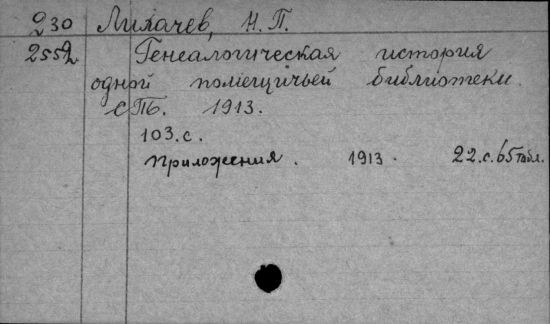 230 Лихачев, Н. П.
2552 Генеалогическая история
одной помещичьей библиотеки.
СПб. 1913.
103.с.
Приложения. 1913. 22.с.65 табл.